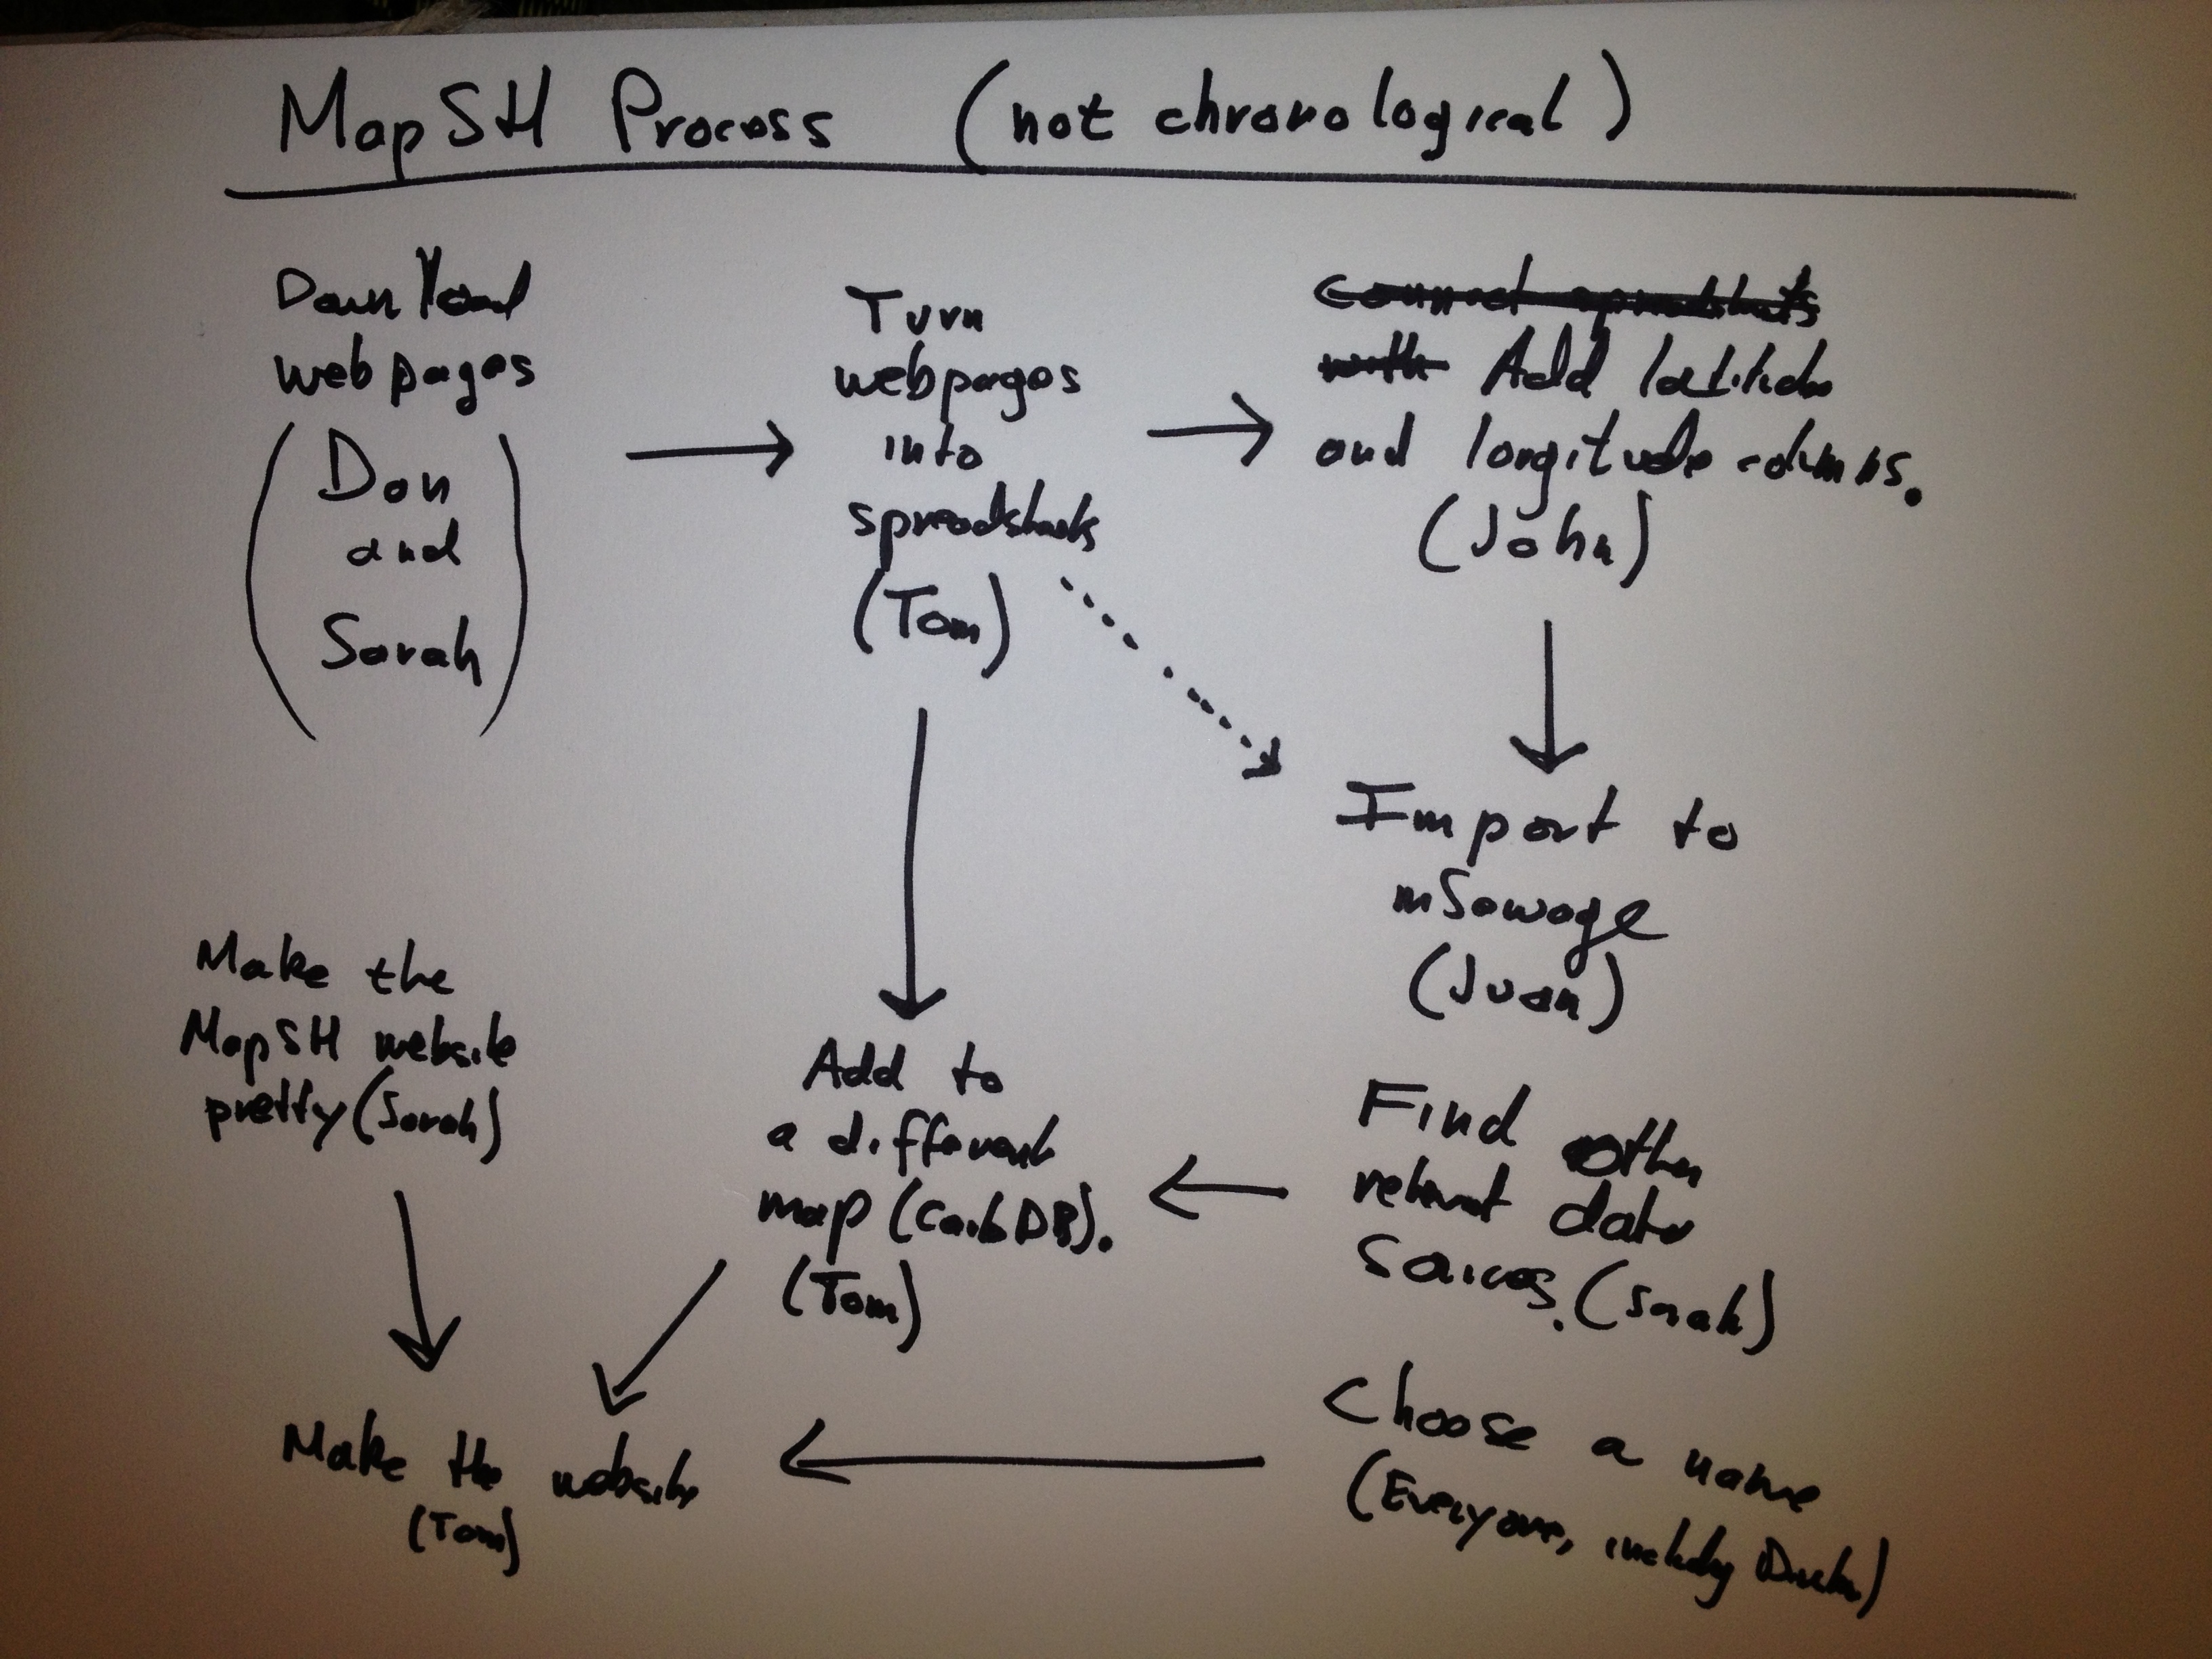 MapSH Process (not chronological)
Download
webpages
(Don
and
Sarah)
Turn
webpages
into
spreadsheets
(Tom)
Connect spreadsheets
with Add latitude
and longitude columns.
(John)
Import to
mSewage
(Juan)
Make the
MapSH website
pretty (Sarah)
Add to
a different
map (CartoDB).
(Tom)
Find other
relevant data
sources. (Sarah)
Make the website
(Tom)
Choose a name
(Everyone, including